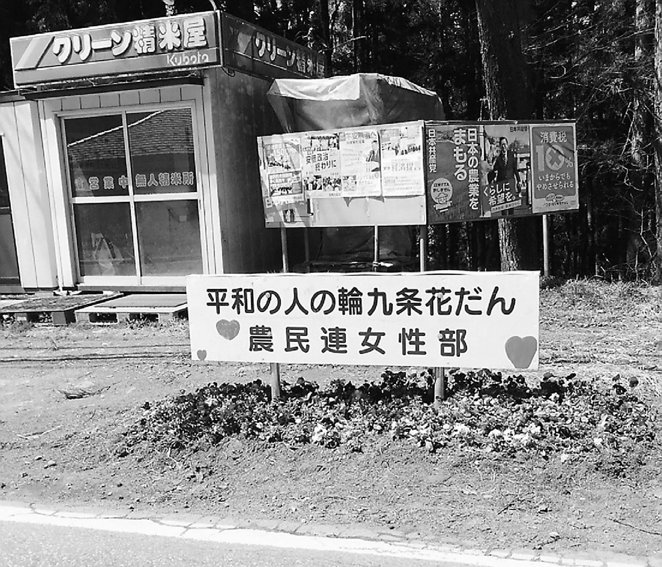 クリーン精米屋
Kubota
クリーン精米屋
営業中 無人精米所
安倍政治
終わりに
日本共産党
日本の農業を
まもる
くらしに
希望を。
日本共産党
消費税
10%
いまからでも
やめさせられる
平和の人の輪九条花だん
農民連女性部